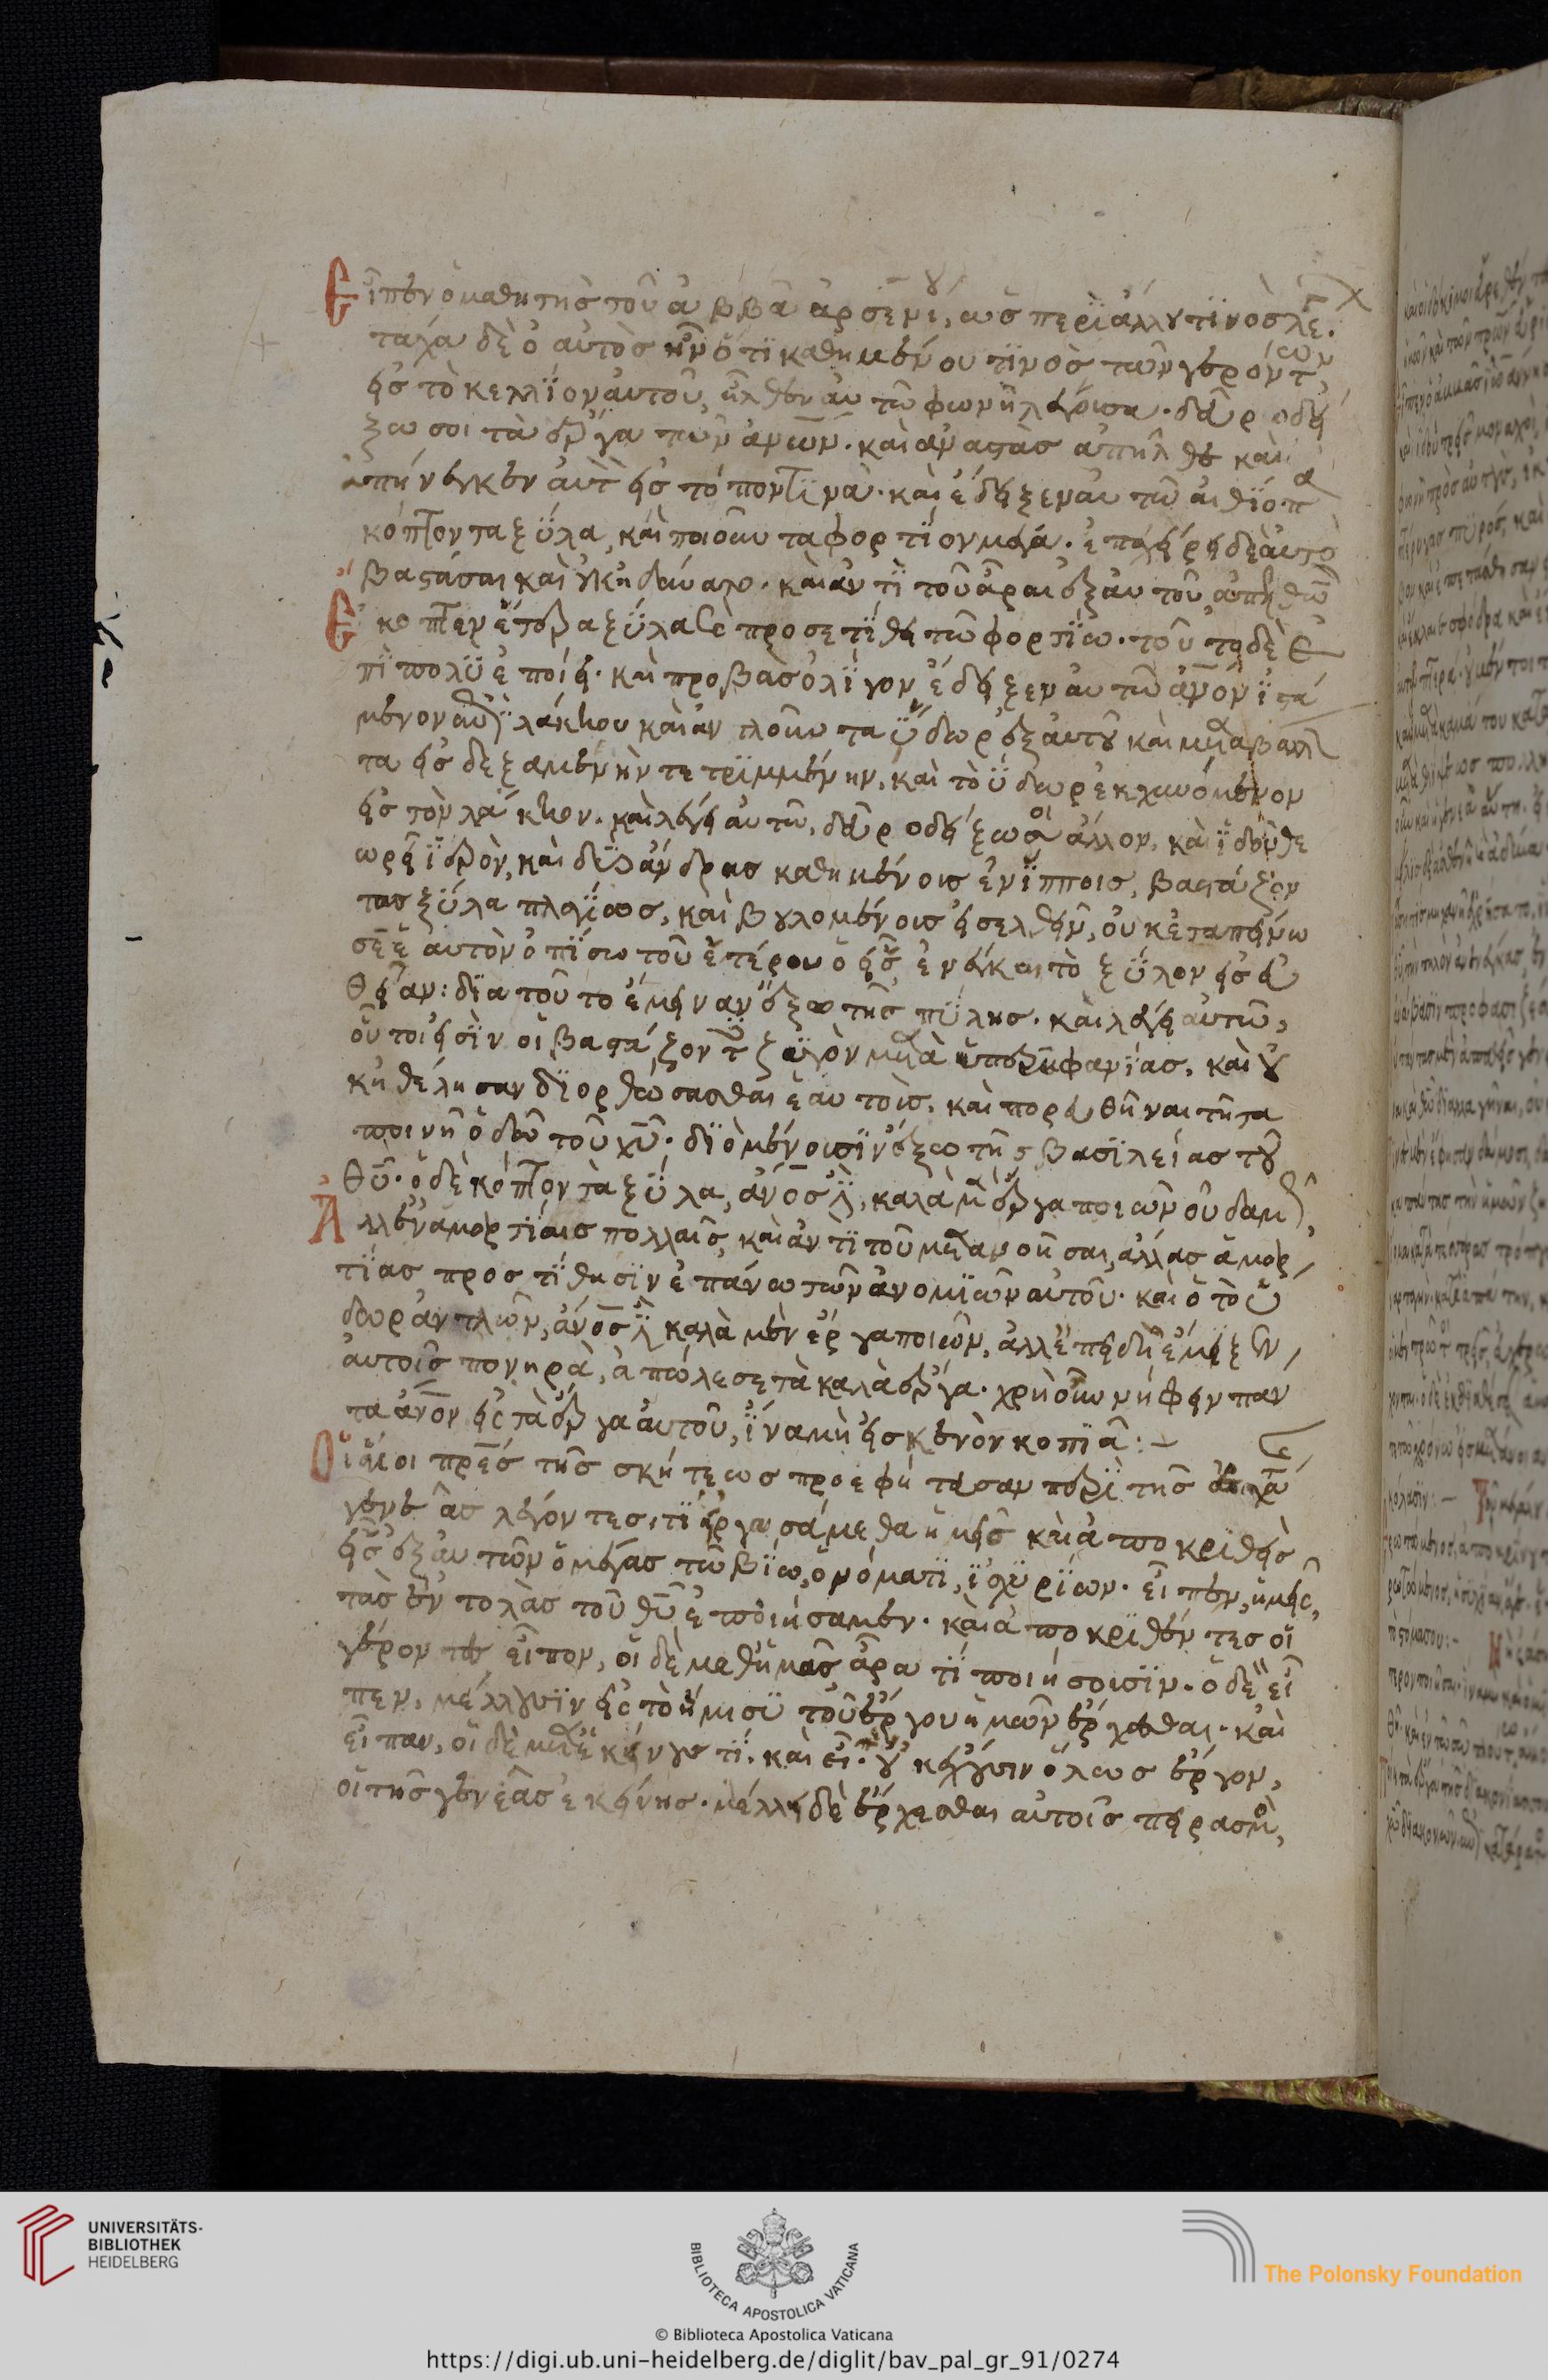 Εἶπεν ὁ μαθητὴς τοῦ ἀββᾶ ἀρσενίου, ὡς περὶ ἄλλου τινὸς λέγ.
τάχα δὲ ὁ αὐτὸς ἦν ὅτι καθημένου τινὸς τῶν γερόντων
εἰς τὸ κελλίον αὐτοῦ, ἦλθεν αὐτῶ φωνὴ λέγουσα. δεῦρο δεί
ξω σοι τὰ ἔργα τῶν ἀνων. καὶ ἀναστὰς ἀπῆλθε καὶ
ἀπήνεγκεν αὐτὸν εἰς τόπον τινὰ. καὶ ἔδειξεν αὐτῶ αἰθίοπα
κόπτοντα ξύλα, καὶ ποιοῦντα φορτίον μέγα. ἐπεχείρει δὲ αὐτὸ
βαστάσαι καὶ οὐκ ἠδύνατο. καὶ ἀντὶ τοῦ ἆραι ἐξ αὐτοῦ ἀπελθὼν
ἔκοπτεν ἕτερα ξύλα καὶ προσετίθει τῶ φορτίω. τοῦτο δὲ ἐ
πὶ πολὺ ἐποίει. καὶ προβὰς ὀλίγον ἔδειξεν αὐτῶ ἄνον ἱστά
μενον ἐπὶ λάκκου καὶ ἀντλοῦντα ὕδωρ ἐξ αὐτοῦ καὶ μεταβάλλον
τα εἰς δεξαμενὴν τετριμμένην, καὶ τὸ ὕδωρ ἐκχυνόμενον
εἰς τὸν λάκκον. καὶ λέγει αὐτῶ, δεῦρο δείξω σοι ἄλλον, καὶ ἰδοὺ θε
ωρεῖ ἱερὸν, καὶ δύο ἄνδρας καθημένους ἐν ἵπποις, βαστάζον
τας ξύλα πλαγίως, καὶ βουλομένους εἰσελθεῖν, οὐκ ἐταπείνω
σε ἑαυτὸν ὀπίσω τοῦ ἑτέρου ὁ εἷς ἐνέγκαι τὸ ξύλον εἰς εὐ
θεῖαν: διὰ τοῦτο ἔμειναν ἔξω τῆς πύλης. καὶ λέγει αὐτῶ,
οὗτοι εἰσὶν οἱ βαστάζοντες ζυγὸν μετὰ ὑπερηφανίας, καὶ οὐ
κ ἠθέλησαν διορθώσασθαι ἑαυτοὺς, καὶ πορευθῆναι τῆ τα
πεινῆ ὁδῶ τοῦ χυ. διὸ μένουσιν ἔξω τῆς βασιλείας τοῦ
θυ. ὁ δὲ κόπτων τὰ ξύλα, ἄνος
Ἀλλ' ἐν ἁμαρτίαις πολλαῖς, καὶ ἀντὶ τοῦ μετανοῆσαι, ἄλλας ἁμαρ
τίας προστίθησιν ἐπάνω τῶν ἀνομιῶν αὐτοῦ. καὶ ὁ τὸ ὕ
δωρ ἀντλῶν, ἄνος ἐστὶ καλὰ μὲν ἔργα ποιῶν, ἀλλ' ἐπειδὴ ἔμιξεν
αὐτοῖς πονηρὰ, ἀπώλεσε τὰ καλὰ ἔργα. χρὴ οὖν νήφειν πάν
τα ἄνον εἰς τὰ ἔργα αὐτοῦ, ἵνα μὴ εἰς κενὸν κοπιᾶ:-
Οἱ ἅγιοι πρες τῆς σκήτεως προεφήτευσαν περὶ τῆς ἐσχάτης
γενεᾶς λέγοντες, τί εἰργασάμεθα ἡμεῖς καὶ ἀποκριθεὶς
εἷς ἐξ αὐτῶν ὁ μέγας τῶ βίω, ὀνόματι, ἰσχυρίων. εἶπεν, ἡμεῖς
τὰς ἐντολὰς τοῦ θυ ἐποιήσαμεν. καὶ ἀποκριθέντες οἱ
γέροντες εἶπον, οἱ δὲ μεθ' ἡμᾶς ἆρα τί ποιήσουσιν. ὁ δὲ εἶ
πεν, μέλλουσιν εἰς τὸ ἥμισυ τοῦ ἔργου ἡμῶν ἔρχεσθαι. καὶ
εἶπαν, οἱ δὲ μετ' ἐκείνους τί. καὶ εἶπ. οὐκ ἔχουσιν ὅλως ἔργον,
οἱ τῆς γενεᾶς ἐκείνης. μέλλει δὲ ἔρχεσθαι αὐτοῖς πειρασμὸς,
UNIVERSITÄTS-
BIBLIOTHEK
HEIDELBERG
BIBLIOTECA APOSTOLICA VATICANA
The Polonsky Foundation
© Biblioteca Apostolica Vaticana
https://digi.ub.uni-heidelberg.de/diglit/bav_pal_gr_91/0274